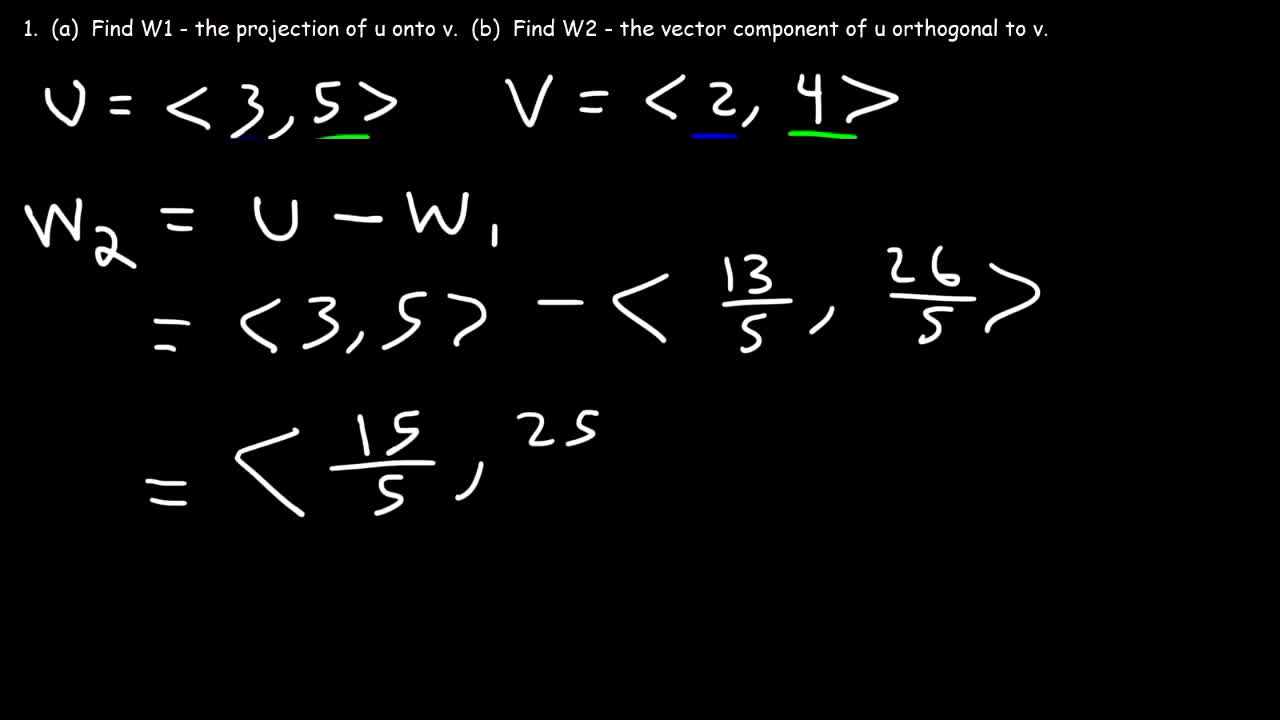 1. (a) Find W1 - the projection of u onto v. (b) Find W2 - the vector component of u orthogonal to v.
U = <3, 5> V = <2, 4>
W₂ = U - W₁
= <3, 5> - <13/5, 26/5>
= <15/5, 25